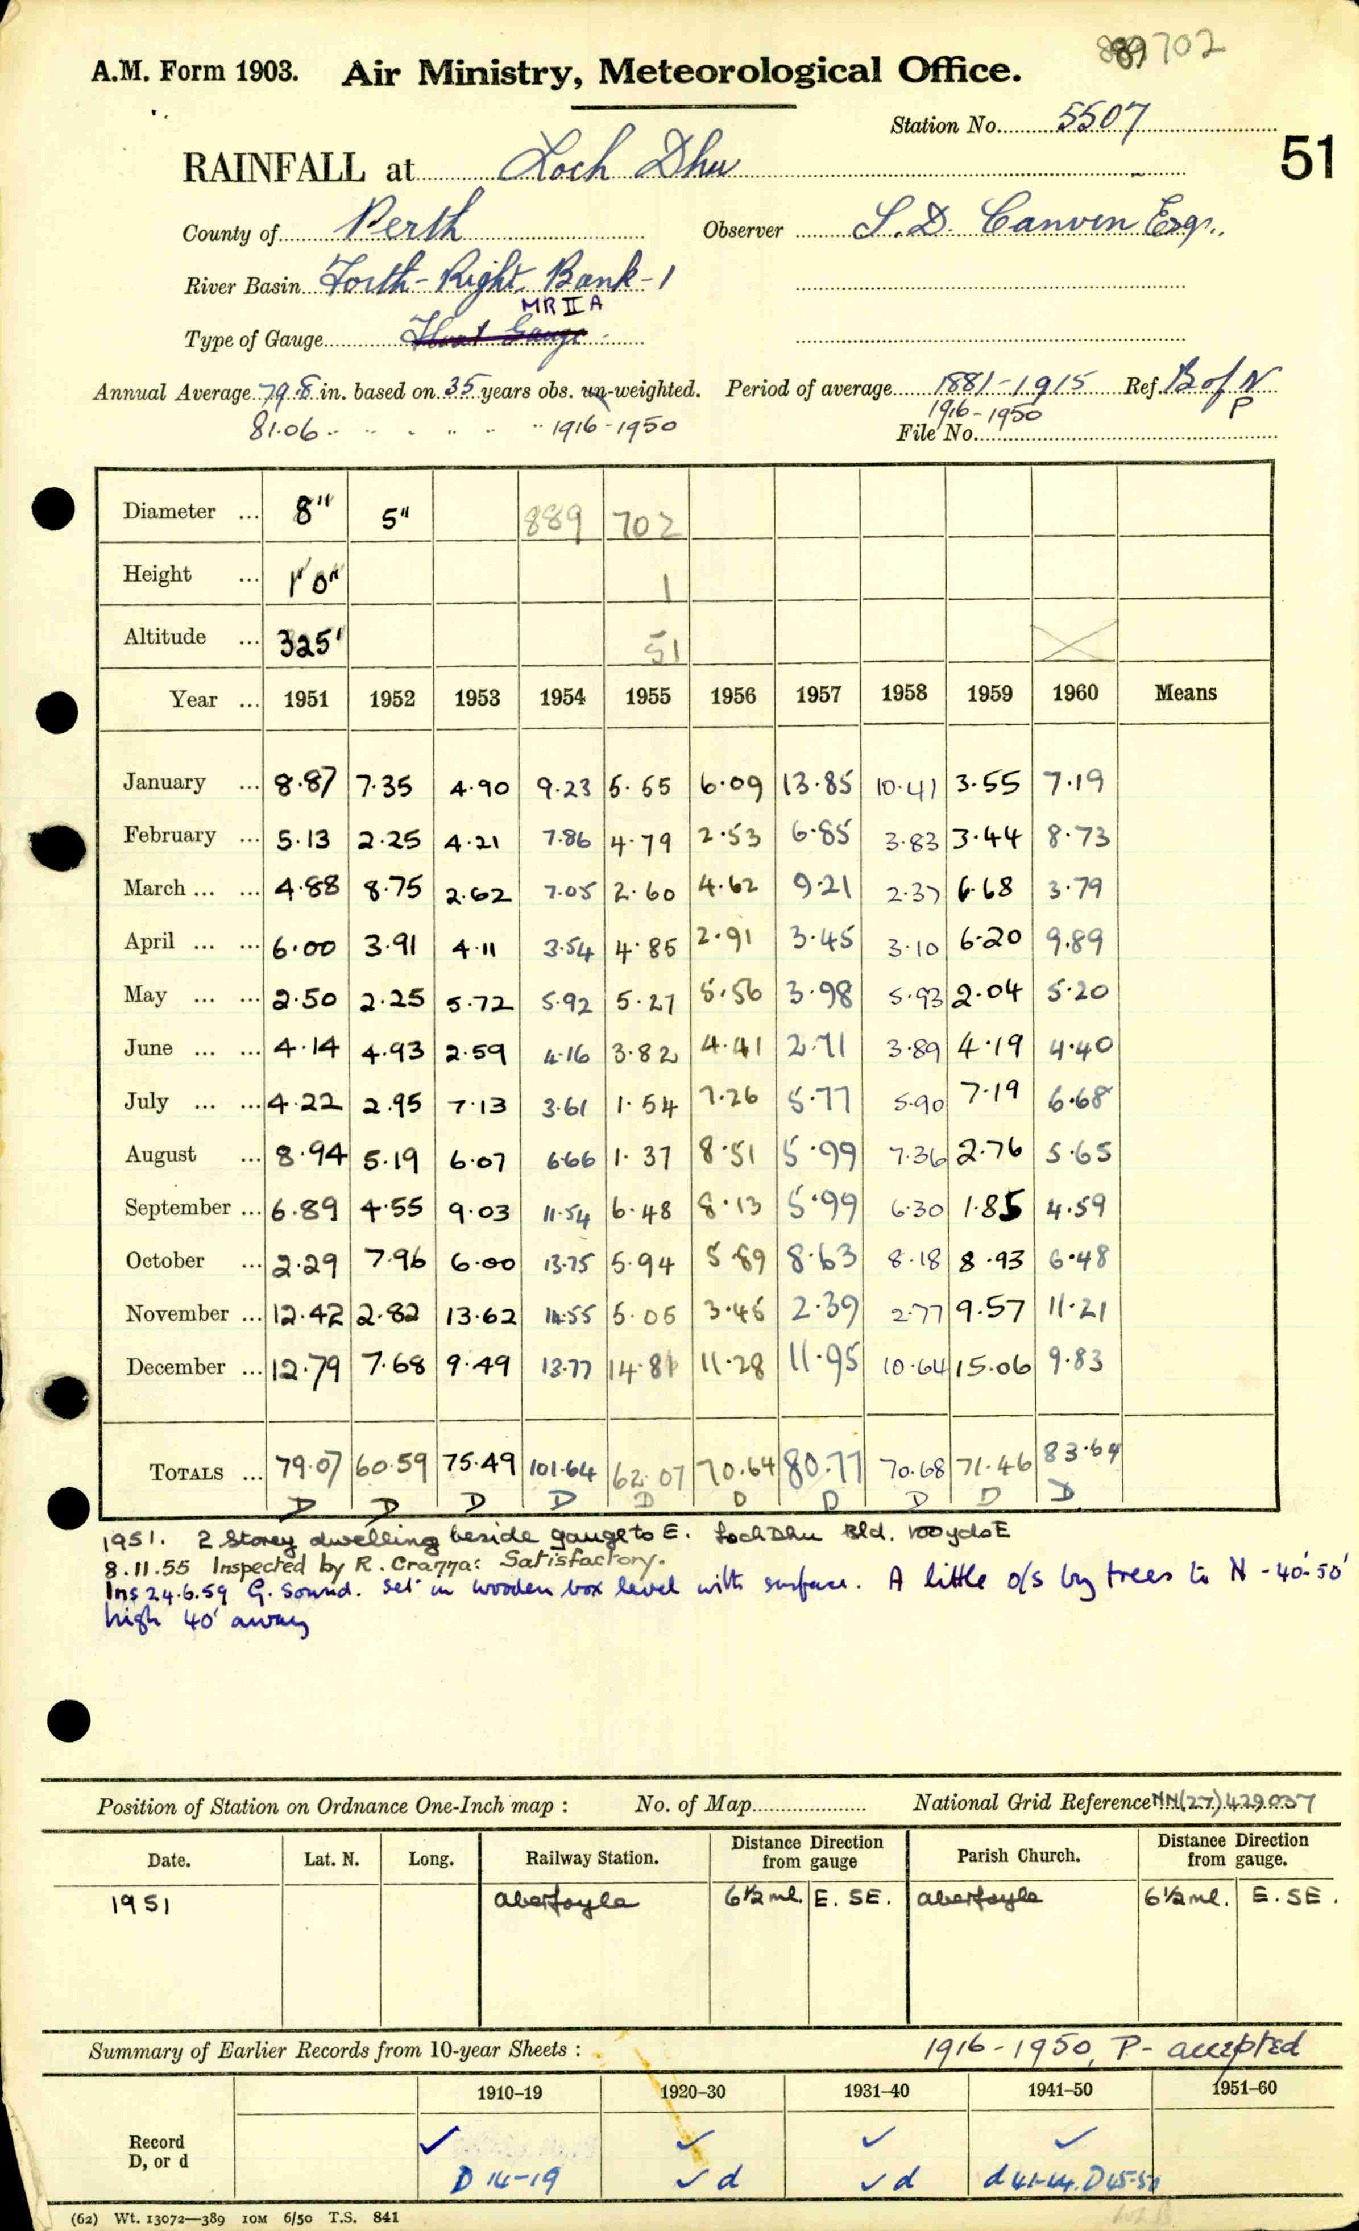 889 702
A.M. Form 1903. Air Ministry, Meteorological Office.
Station No. 5507
51
RAINFALL at Loch Dhu
County of Perth Observer S. D. Canven Esqr.,
River Basin Forth-Right Bank-1
MR II A
Type of Gauge Float Gauge
Annual Average 79.8 in. based on 35 years obs. un-weighted. Period of average 1881-1915 Ref. B of N
81.06 " " " " " " 1916-1950 1916-1950 P
File No.
Diameter ... 8" 5" 889 702
Height ... 1' 0" 1
Altitude ... 325' 51
Year ... 1951 1952 1953 1954 1955 1956 1957 1958 1959 1960 Means
January ... 8.87 7.35 4.90 9.23 5.55 6.09 13.85 10.41 3.55 7.19
February ... 5.13 2.25 4.21 7.86 4.79 2.53 6.85 3.83 3.44 8.73
March ... ... 4.88 8.75 2.62 7.05 2.60 4.62 9.21 2.37 6.68 3.79
April ... ... 6.00 3.91 4.11 3.54 4.85 2.91 3.45 3.10 6.20 9.89
May ... ... 2.50 2.25 5.72 5.92 5.27 5.56 3.98 5.93 2.04 5.20
June ... ... 4.14 4.93 2.59 4.16 3.82 4.41 2.71 3.89 4.19 4.40
July ... ... 4.22 2.95 7.13 3.61 1.54 7.26 5.77 5.90 7.19 6.68
August ... 8.94 5.19 6.07 6.66 1.37 8.51 5.99 7.36 2.76 5.65
September ... 6.89 4.55 9.03 11.54 6.48 8.13 5.99 6.30 1.85 4.59
October ... 2.29 7.96 6.00 13.75 5.94 5.89 8.63 8.18 8.93 6.48
November ... 12.42 2.82 13.62 14.55 5.05 3.45 2.39 2.77 9.57 11.21
December ... 12.79 7.68 9.49 13.77 14.81 11.28 11.95 10.64 15.06 9.83
TOTALS ... 79.07 60.59 75.49 101.64 62.07 70.64 80.77 70.68 71.46 83.64
D D D D D D D D D D
1951. 2 Storey dwelling beside gauge to E. Loch Dhu Bld. 100 yds E
8.11.55 Inspected by R. Cragga: Satisfactory.
Ins 24.6.59 G. Sound. Set in wooden box level with surface. A little o/s by trees to N - 40'-50'
high 40' away
Position of Station on Ordnance One-Inch map : No. of Map National Grid Reference NN(27)429037
Date. Lat. N. Long. Railway Station. Distance Direction from gauge Parish Church. Distance Direction from gauge.
1951 Aberfoyle 6½ ml. E. SE. Aberfoyle 6½ ml. E. SE.
Summary of Earlier Records from 10-year Sheets : 1916-1950, P- accepted
1910–19 1920–30 1931–40 1941–50 1951–60
Record ✓ ✓ ✓ ✓
D, or d D 14-19 ✓ d ✓ d d 41-44. D45-50
(62) Wt. 13072—389 IOM 6/50 T.S. 841